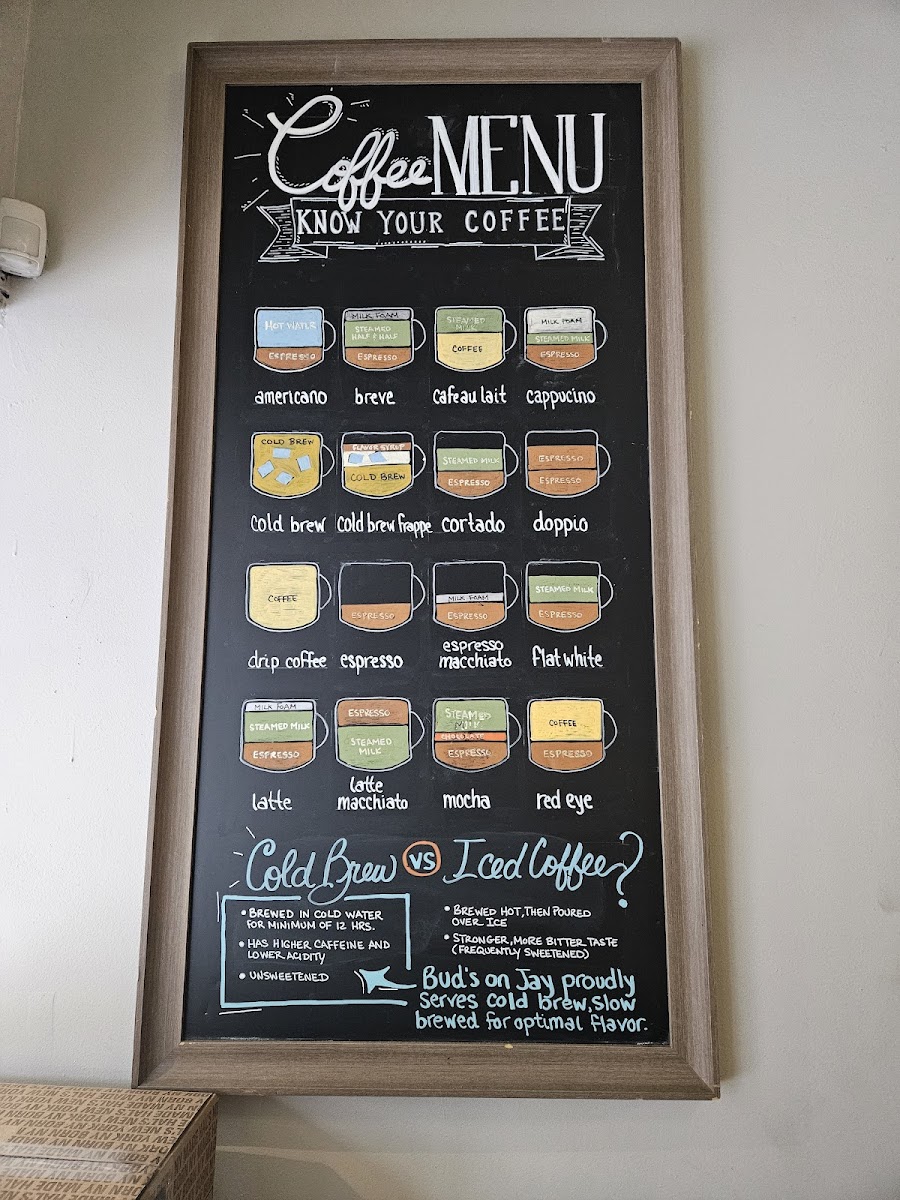 Coffee MENU
KNOW YOUR COFFEE
HOT WATER
ESPRESSO
americano
MILK FOAM
STEAMED
HALF & HALF
ESPRESSO
breve
STEAMED
MILK
COFFEE
cafe au lait
MILK FOAM
STEAMED MILK
ESPRESSO
cappucino
COLD BREW
cold brew
FLAVOR SYRUP
COLD BREW
cold brew frappe
STEAMED MILK
ESPRESSO
cortado
ESPRESSO
ESPRESSO
doppio
COFFEE
drip coffee
ESPRESSO
espresso
MILK FOAM
ESPRESSO
espresso
macchiato
STEAMED MILK
ESPRESSO
flat white
MILK FOAM
STEAMED MILK
ESPRESSO
latte
ESPRESSO
STEAMED
MILK
latte
macchiato
STEAMED
MILK
CHOCOLATE
ESPRESSO
mocha
COFFEE
ESPRESSO
red eye
Cold Brew VS Iced Coffee?
• BREWED IN COLD WATER
FOR MINIMUM OF 12 HRS.
• HAS HIGHER CAFFEINE AND
LOWER ACIDITY
• UNSWEETENED
• BREWED HOT, THEN POURED
OVER ICE
• STRONGER, MORE BITTER TASTE
(FREQUENTLY SWEETENED)
Bud's on Jay proudly
serves cold brew, slow
brewed for optimal flavor.